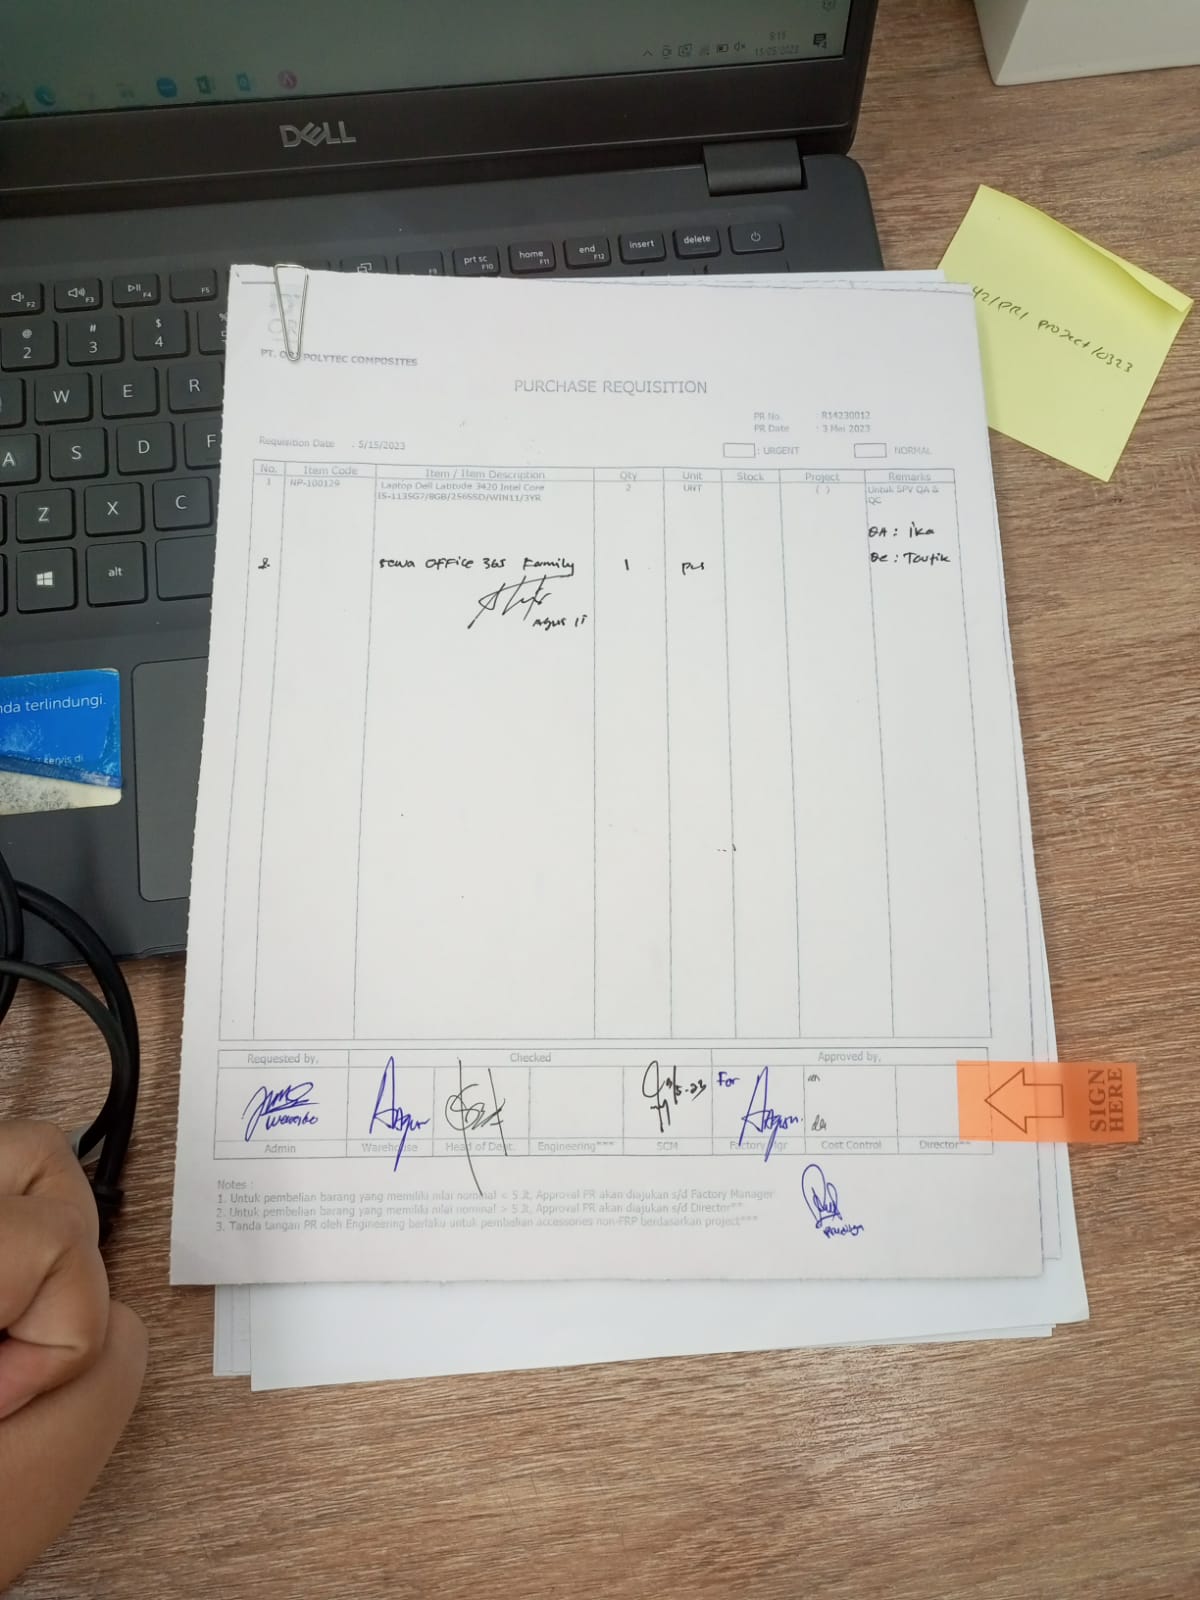 9:15
15/05/2023
DELL
prt sc
F10
home
F11
end
F12
insert
delete
F2
F3
F4
F5
F9
@
2
#
3
$
4
%
W
E
R
A
S
D
F
Z
X
C
alt
nda terlindungi.
servis di
42/PR/ project/0323
PT. POLYTEC COMPOSITES
PURCHASE REQUISITION
PR No. : R14230012
PR Date : 3 Mei 2023
Requisition Date : 5/15/2023
: URGENT
NORMAL
No. Item Code Item / Item Description Qty Unit Stock Project Remarks
1 NP-100129 Laptop Dell Latitude 3420 Intel Core 2 UNT ( ) Untuk SPV QA &
i5-1135G7/8GB/256SSD/WIN11/3YR QC
QA : Ika
2 sewa OFFice 365 Family 1 pcs QC : Taufik
Agus IT
Requested by, Checked Approved by,
For
Admin Warehouse Head of Dept. Engineering*** SCM Factory Mgr Cost Control Director**
SIGN
HERE
Notes :
1. Untuk pembelian barang yang memiliki nilai nominal < 5 Jt, Approval PR akan diajukan s/d Factory Manager
2. Untuk pembelian barang yang memiliki nilai nominal > 5 Jt, Approval PR akan diajukan s/d Director**
3. Tanda tangan PR oleh Engineering berlaku untuk pembelian accessories non-FRP berdasarkan project***